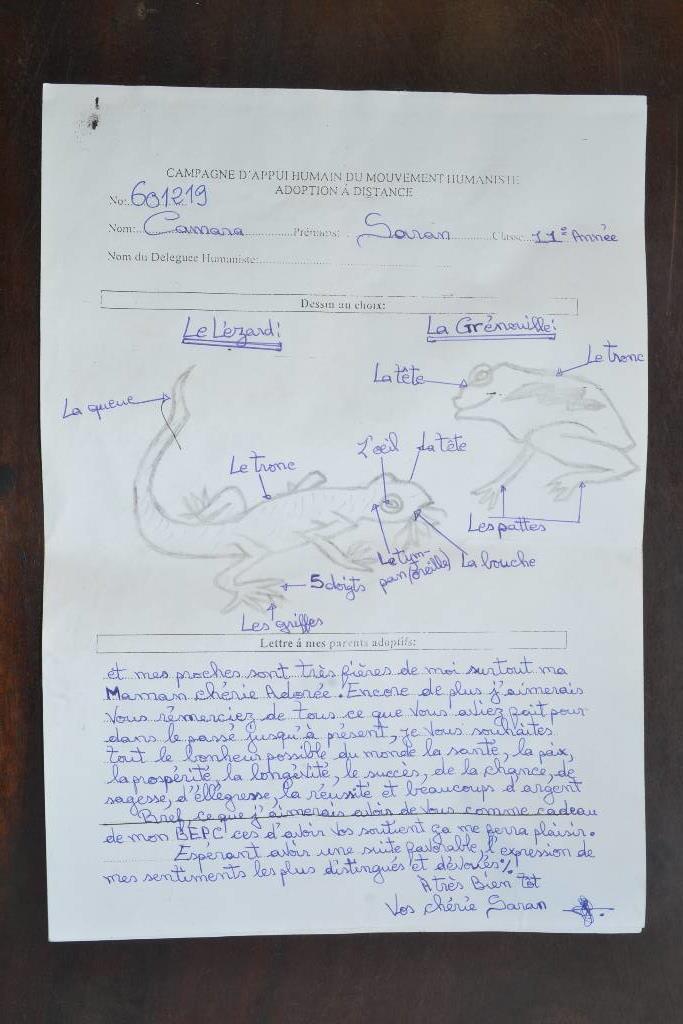 CAMPAGNE D'APPUI HUMAIN DU MOUVEMENT HUMANISTE
ADOPTION Á DISTANCE
No: 601219
Nom: Camara Prénoms: Saran Classe: 11e Année
Nom du Deleguee Humaniste:
Dessin au choix:
Le Lézard:
La Grénouille:
La queue
Le tronc
L'œil
La tête
La tête
Le tronc
Les pattes
Le tym-
pan(oreille)
La bouche
5 doigts
Les griffes
Lettre á mes parents adoptifs:
et mes proches sont très fières de moi surtout ma
Maman chérie Adorée. Encore de plus j'aimerais
Vous rémerciez de tous ce que vous aviez fait pour
dans le passé jusqu'à présent, je vous souhaites
tout le bonheur possible du monde la santé, la paix,
la prospérité, la longétité, le succès, de la chance, de
sagesse, d'ellégresse, la réussité et beaucoups d'argent
Bref, ce que j'aimerais avoir de vous comme cadeau
de mon BEPC ces d'avoir vos soutient ça me ferra plaisir.
Espérant avoir une suite favorable, l'expression de
mes sentiments les plus distingués et dévoués %!
À très Bien tôt
Vos chérie Saran